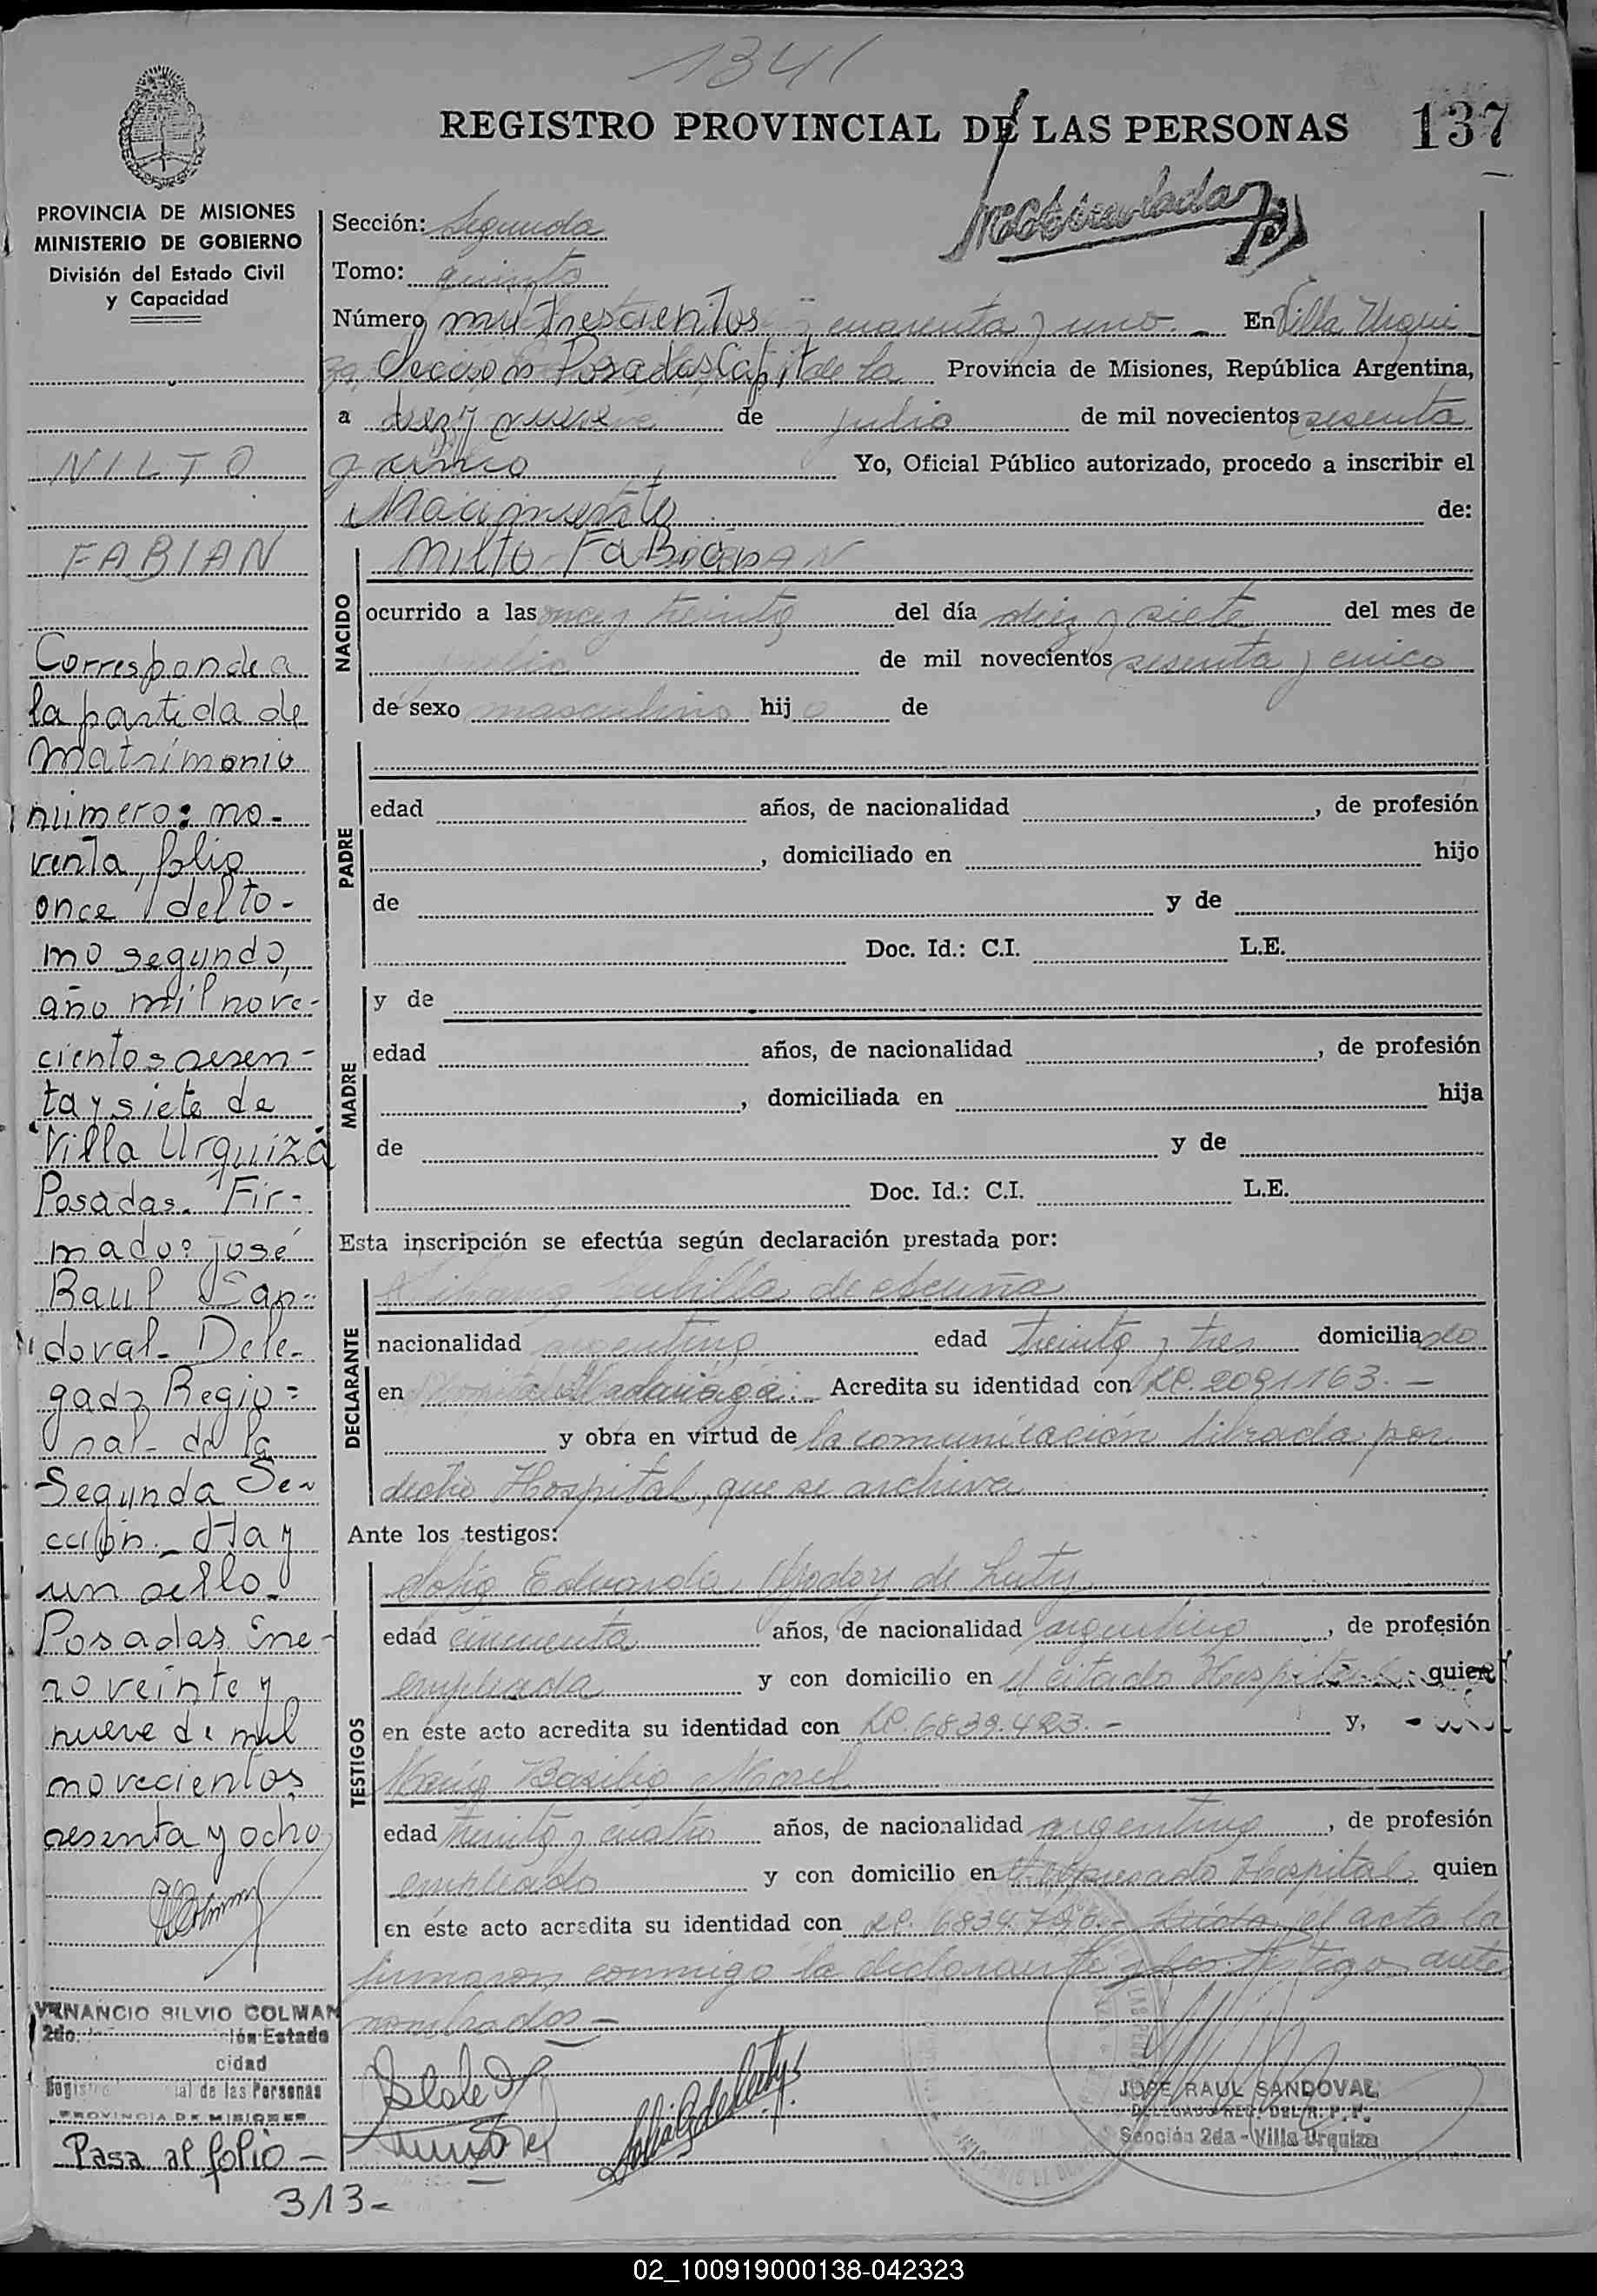 1341
REGISTRO PROVINCIAL DE LAS PERSONAS 137
PROVINCIA DE MISIONES
MINISTERIO DE GOBIERNO
División del Estado Civil
y Capacidad
NILTO
FABIAN
Corresponde a
la partida de
Matrimonio
número: no-
venta, folio
once del to-
mo segundo,
año mil nove-
cientos sesen-
ta y siete de
Villa Urquiza
Posadas. Fir-
mado: José
Raul San-
doval- Dele-
gado Regio=
nal- de la
Segunda Se-
cción.- Hay
un sello-
Posadas Ene-
ro veinte y
nueve de mil
novecientos
sesenta y ocho
VENANCIO SILVIO COLMAN
2do. ión Estado
cidad
Regis al de las Personas
PROVINCIA DE MISIONES
Pasa al folio -
313-
Matriculada
Sección: Segunda
Tomo: quinto
Número mil trescientos y cuarenta y uno.- En Villa Urqui
za, Posadas Capit de la Provincia de Misiones, República Argentina,
a diez y nueve de julio de mil novecientos sesenta
y cinco Yo, Oficial Público autorizado, procedo a inscribir el
Nacimiento de:
NACIDO
Milto Fabián
ocurrido a las once y treinta del día diez y siete del mes de
julio de mil novecientos sesenta y cinco
de sexo masculino hijo de
PADRE
edad años, de nacionalidad , de profesión
, domiciliado en hijo
de y de
Doc. Id.: C.I. L.E.
MADRE
y de
edad años, de nacionalidad , de profesión
, domiciliada en hija
de y de
Doc. Id.: C.I. L.E.
Esta inscripción se efectúa según declaración prestada por:
DECLARANTE
de Acuña
nacionalidad argentina edad treinta y tres domiciliado
en Hospital Madariaga.- Acredita su identidad con LC. 2091163.-
y obra en virtud de la comunicación librada por
dicho Hospital, que se archiva
Ante los testigos:
TESTIGOS
Sofía Eduarda Godoy de Luty
edad cincuenta años, de nacionalidad argentina, de profesión
empleada y con domicilio en el citado Hospital quien
en este acto acredita su identidad con LC. 6839.423.- y,
María Basilia Morel
edad treinta y cuatro años, de nacionalidad argentina, de profesión
empleada y con domicilio en el expresado Hospital quien
en éste acto acredita su identidad con LC. Leída el acta la
firmaron conmigo la declarante y los testigos ante
nombrados-
JOSE RAUL SANDOVAL
DELEGADO REG. DEL R. P. P.
Sección 2da - Villa Urquiza
02_100919000138-042323